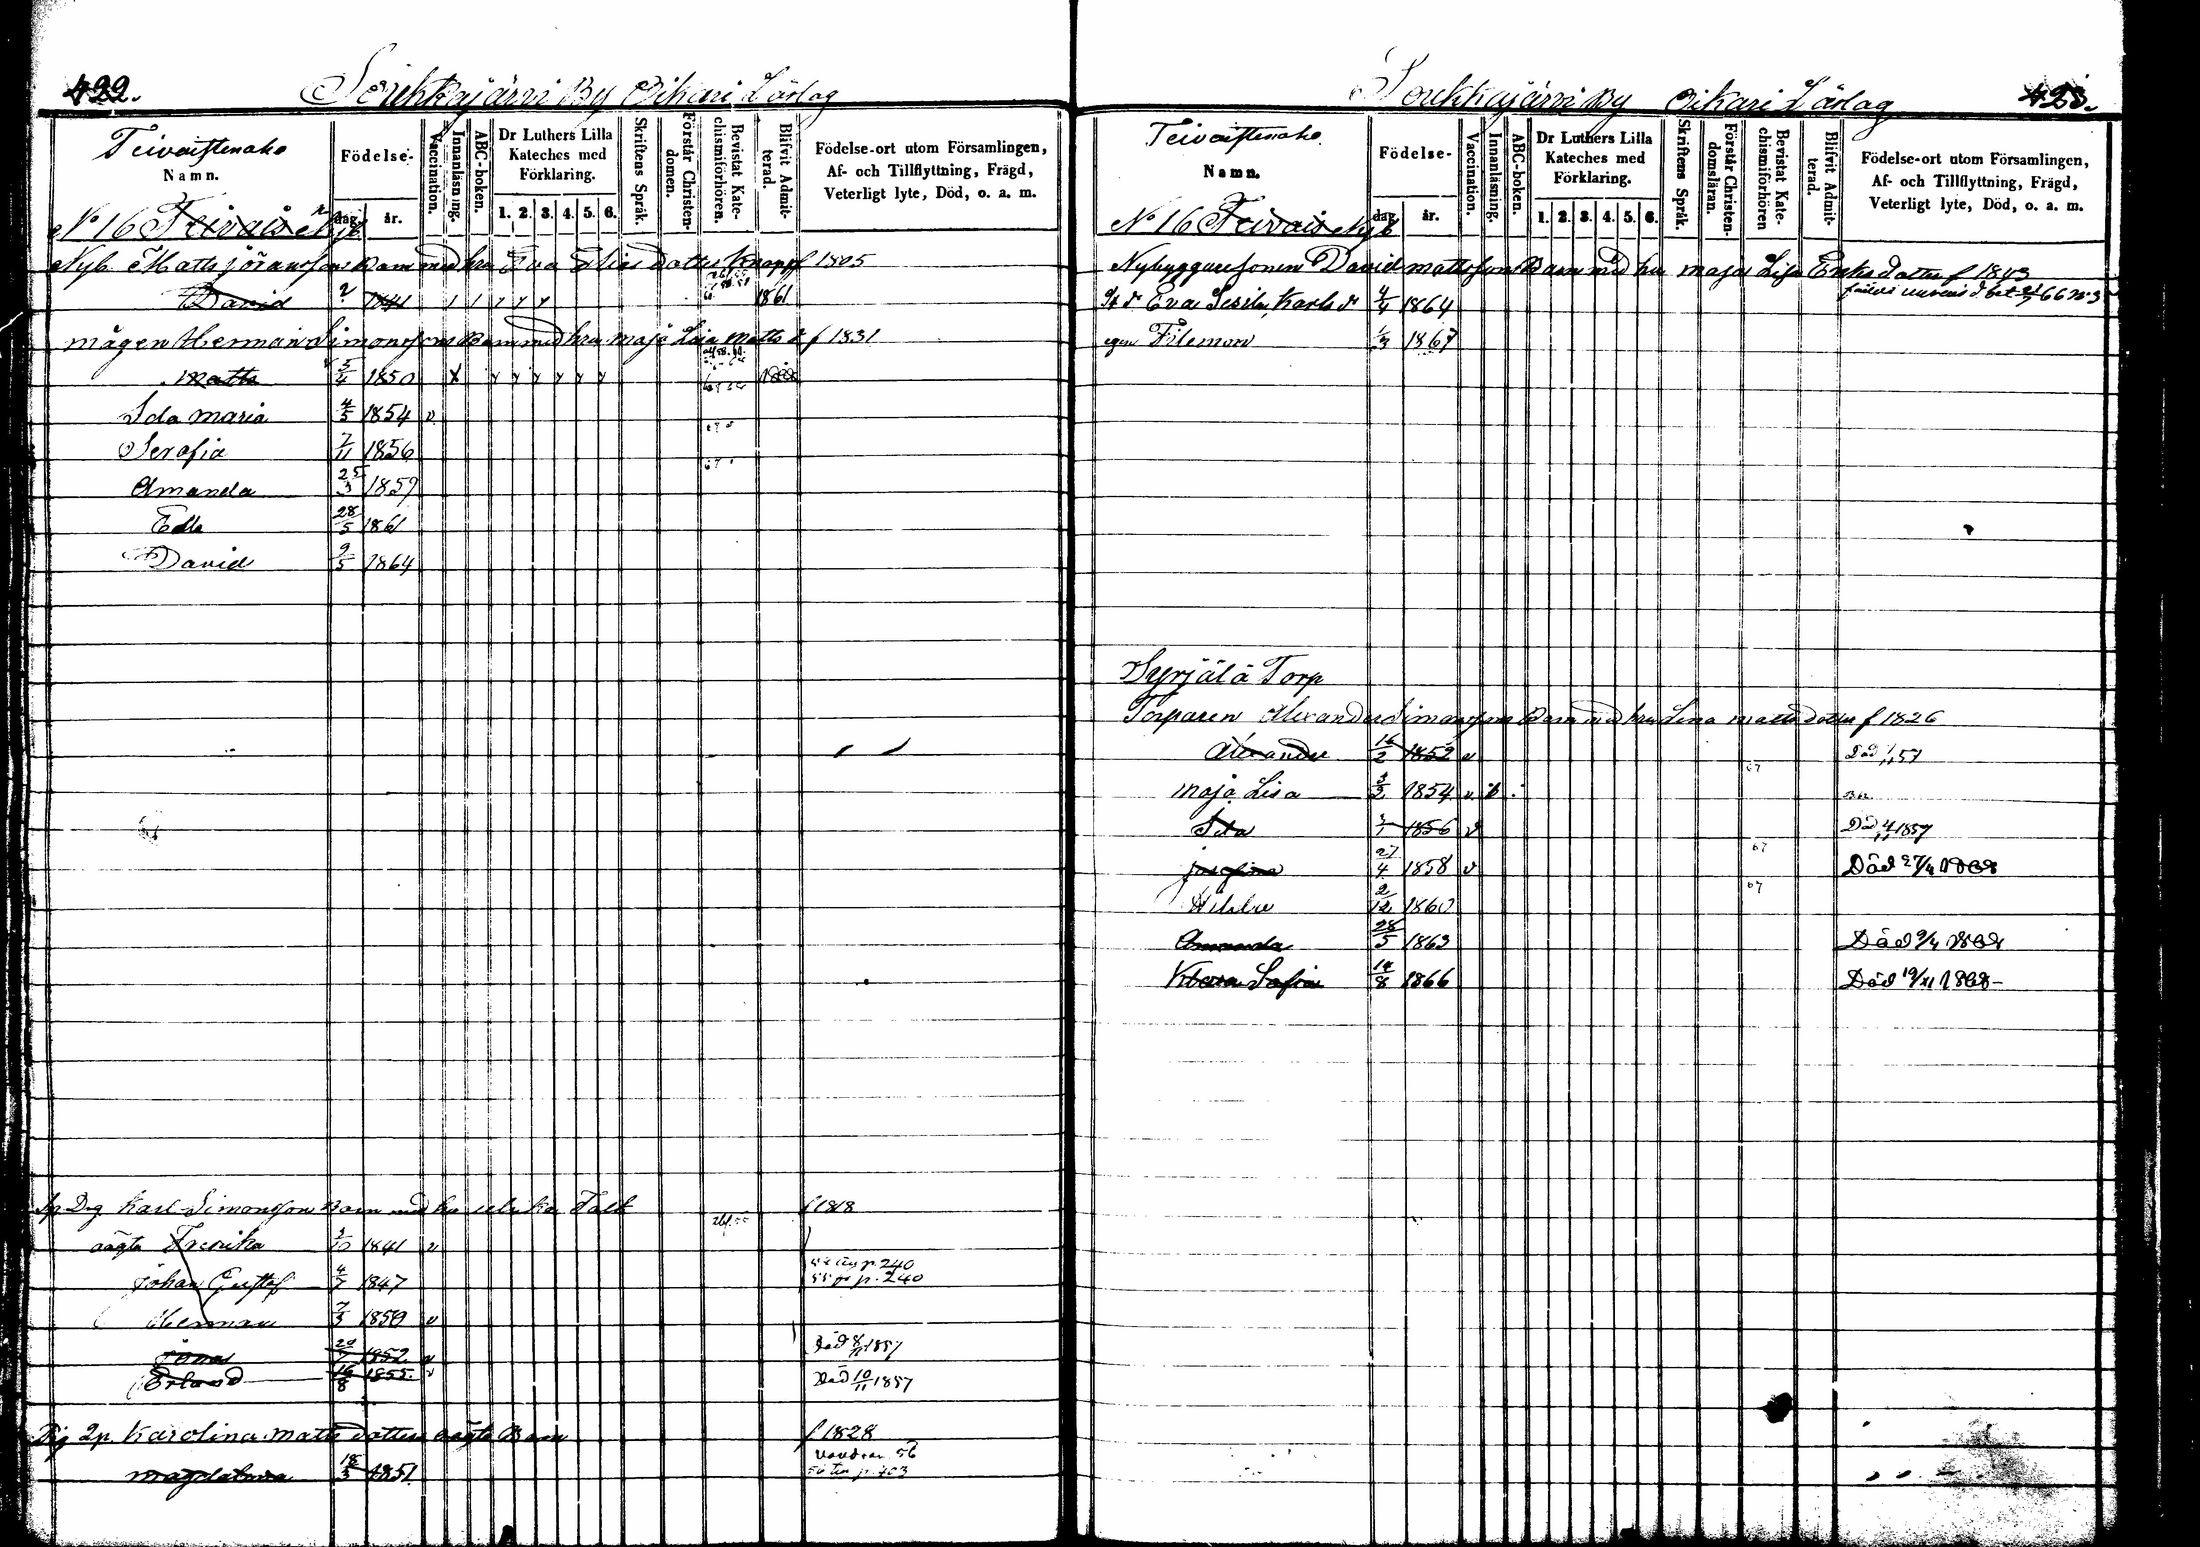 422.
Soukkajärvi By Oikari Läslag
Teivaistenaho
Namn.
Födelse-
dag. år.
Vaccination.
Innanläsning.
ABC-boken.
Dr Luthers Lilla Kateches med Förklaring.
1. 2. 3. 4. 5. 6.
Skriftens Språk.
Förstår Christendomen.
Bevistat Katechismiförhören.
Blifvit Admitterad.
Födelse-ort utom Församlingen,
Af- och Tillflyttning, Frägd,
Veterligt lyte, Död, o. a. m.
No 16 Teivais Nyb
Nyb. Matts Jöransons Barn med hu Eva Elias dotter Knapp f 1805
David 2 1841 1861
mågen Herman Simonssons Barn med hu maja Lisa Matts d f 1831
Matts 5/4 1850 1868
Ida maria 4/5 1854 v
Serafia 7/11 1856
Amanda 25/3 1859
Edla 28/5 1861
David 9/5 1864
Sp Drg Karl Simonsson Barn med hu Ulrika Falt f 1818
oägta Fredrika 3/10 1841 v
Johan Gustaf 4/7 1847 55 p. 240
Herman 7/3 1850 v
Jonas 20/7 1852 v Död 8/11 1857
Erland 16/8 1855 v Död 10/11 1857
Pig 2p. Karolina matts dotters oägta Barn f 1828
magdalena 18/3 1851 56 p. 403
423.
Soukkajärvi By Oikari Läslag
Teivaistenaho.
Namn.
Födelse-
dag. år.
Vaccination.
Innanläsning.
ABC-boken.
Dr Luthers Lilla Kateches med Förklaring.
1. 2. 3. 4. 5. 6.
Skriftens Språk.
Förstår Christendomsläran.
Bevistat Katechismiförhören
Blifvit Admitterad.
Födelse-ort utom Församlingen,
Af- och Tillflyttning, Frägd,
Veterligt lyte, Död, o. a. m.
No 16 Teivais Nyb
Nybyggaresonen David mattssons Barn med hu maja Lisa Eriks dotter f 1843
St d Eva Sesilia Karls d 4/4 1864
egen Filemon 1/3 1867
Syrjälä Torp
Torparen Alexander Simonssons Barn med hu Lena matts dotter f 1826
Alexander 16/2 1852 v Död 57
maja Lisa 3/2 1854 v
Ida 1856 v Död 4/11 1857
Josefina 27/4 1858 v Död 27/4 1868
Hilda 2/12 1860
Amanda 28/5 1863 Död 9/4 1868
Klara Sofia 14/8 1866 Död 19/XI 1868